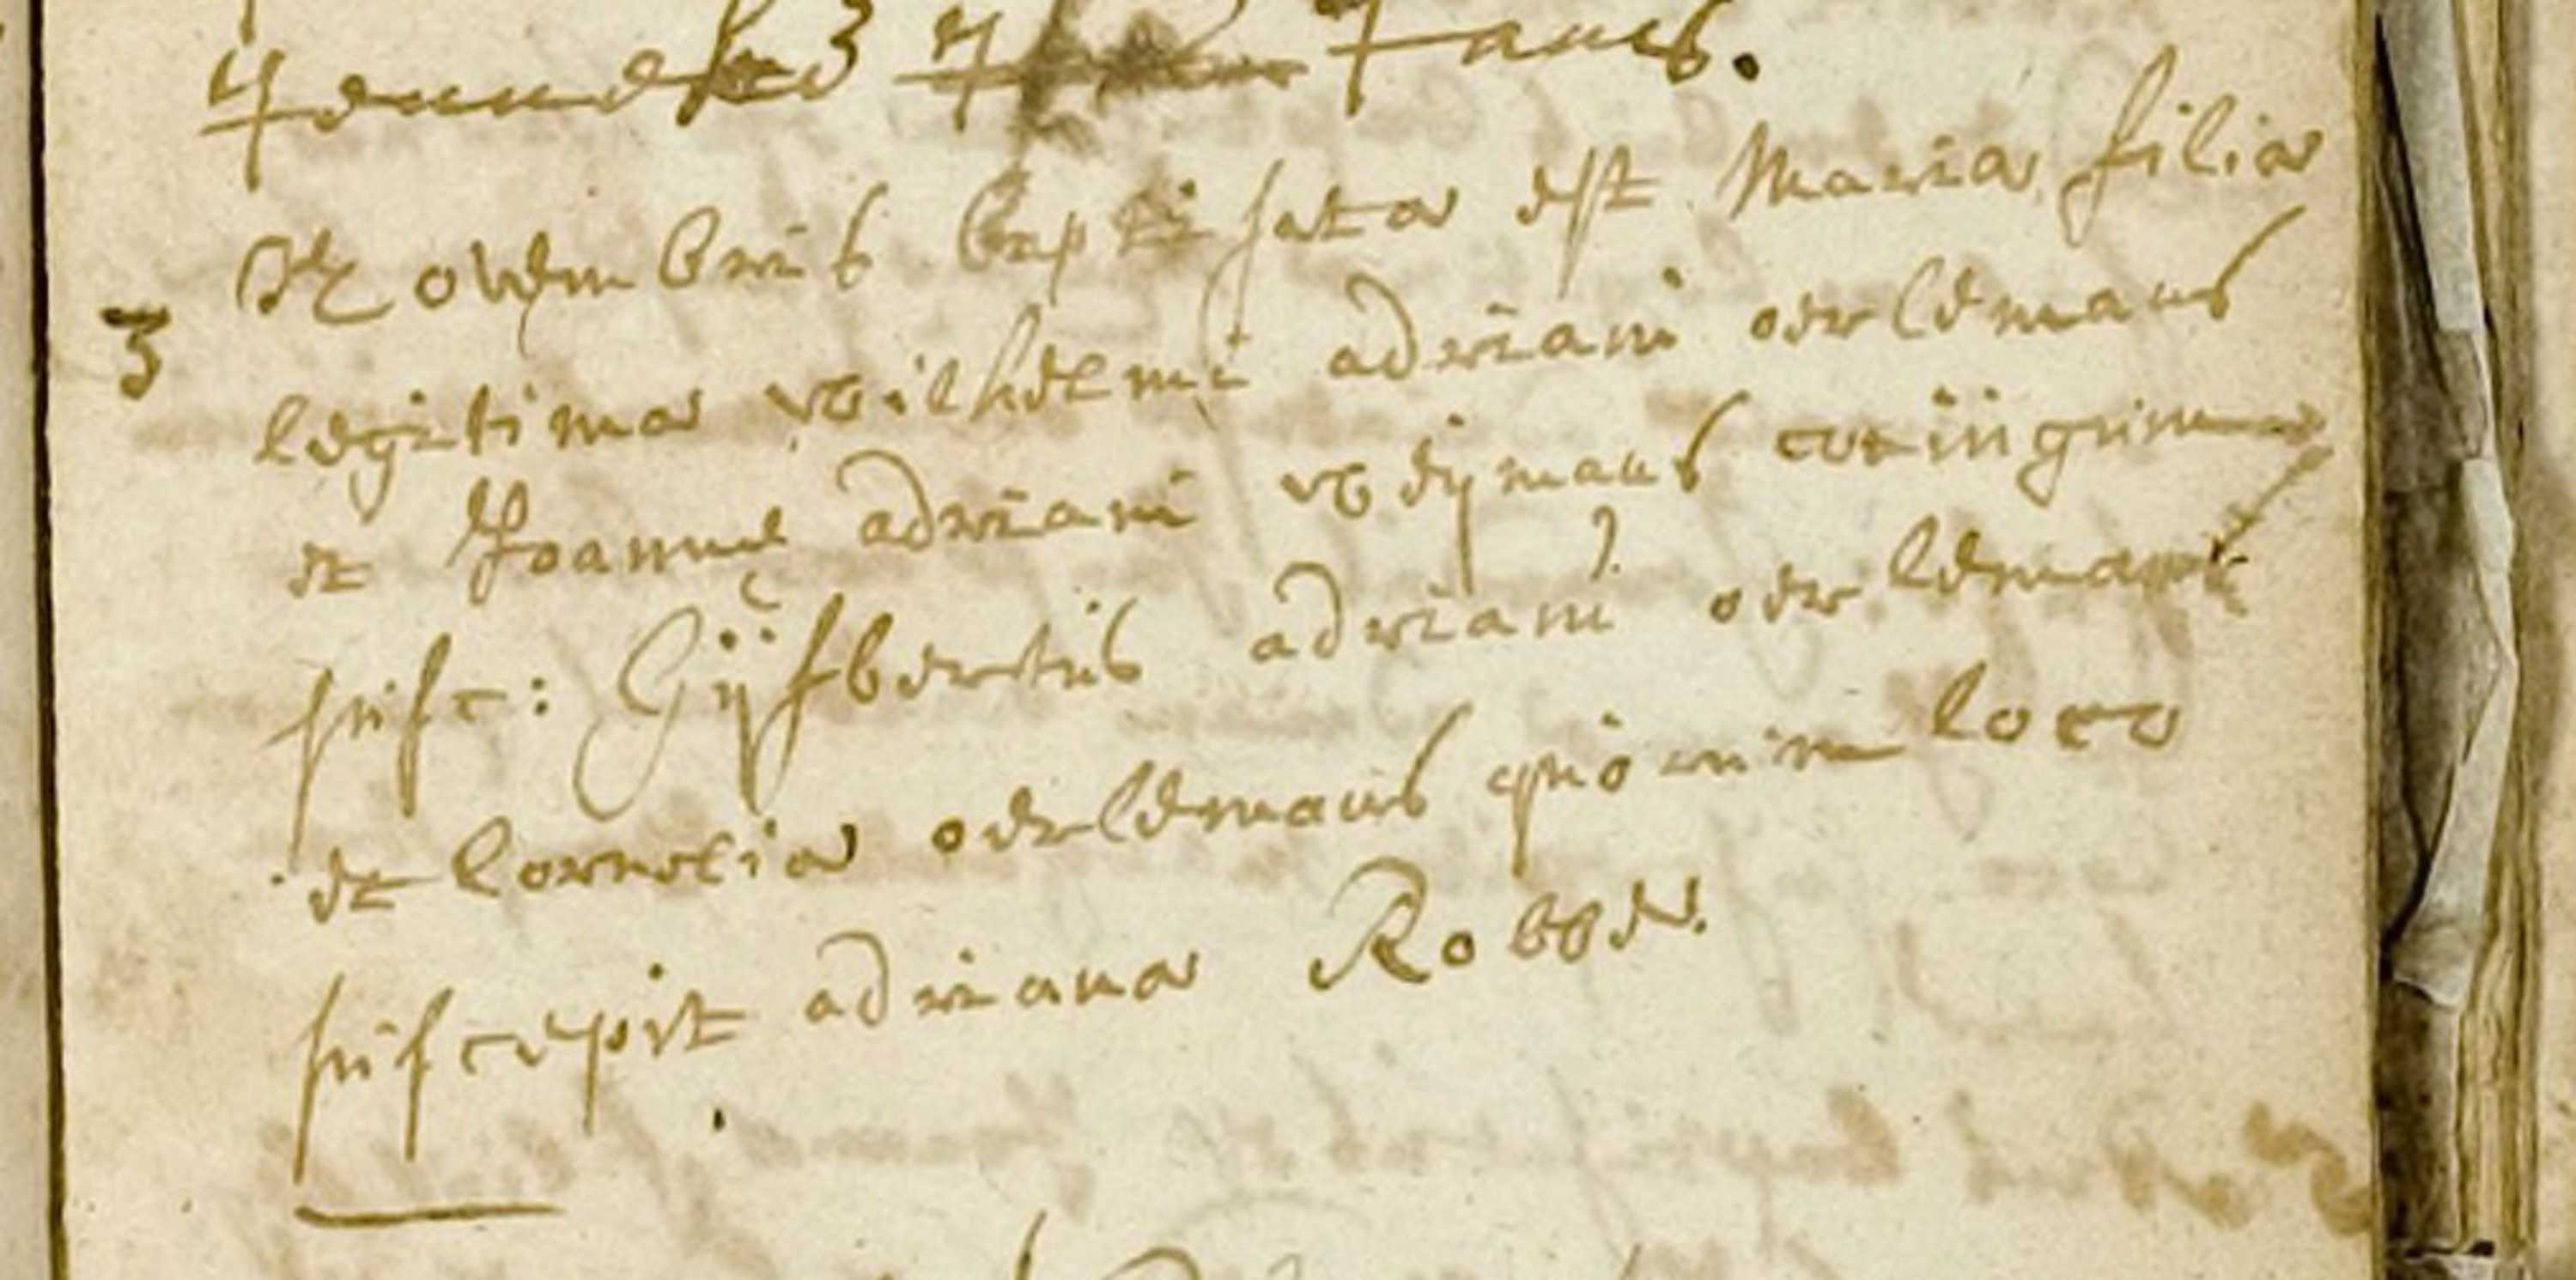 Jans.
Novembris baptisata est Maria filia
3
legitima wilhelmi adriani oerlemans
et Joannae adriani weijmans coniugum
susc: Gijsbertus adriani oerlemans
et Cornelia oerlemans quorum loco
suscepit adriana Robben.